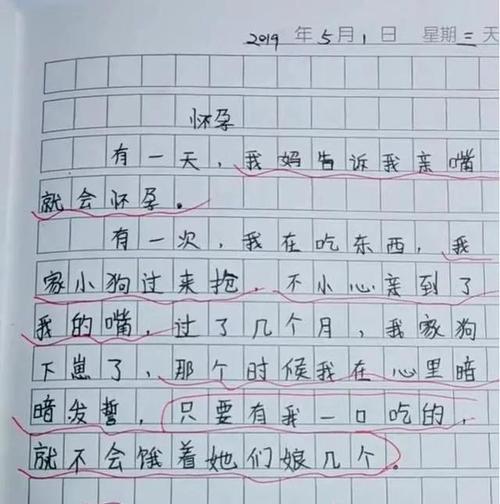 2019年5月1日 星期三 天
怀孕
有一天，我妈告诉我亲嘴
就会怀孕。
有一次，我在吃东西，我
家小狗过来抢，不小心亲到了
我的嘴，过了几个月，我家狗
下崽了，那个时候我在心里暗
暗发誓，只要有我一口吃的，
就不会饿着她们娘几个。